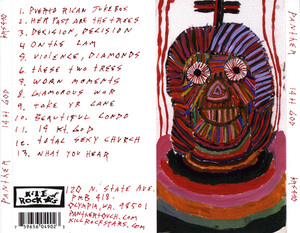 1. PUERTO RICAN JUKEBOX
2. HER PAST ARE THE TREES
3. DECISION, DECISION
4. ON THE LAM
5. VIOLENCE, DIAMONDS
6. THESE TWO TREES
7. WORN MOMENTS
8. GLAMOROUS WAR
9. TAKE YR CANE
10. BEAUTIFUL CONDO
11. 14 KT. GOD
12. TOTAL SEXY CHURCH
13. WHAT YOU HEAR
KILL
ROCK STARS
120 N. STATE AVE.
PMB 418
OLYMPIA, WA. 98501
PANTHERTOUCH.COM
KILLROCKSTARS.COM
KRS490
14 KT GOD
PANTHER
PANTHER
14 KT GOD
KRS490